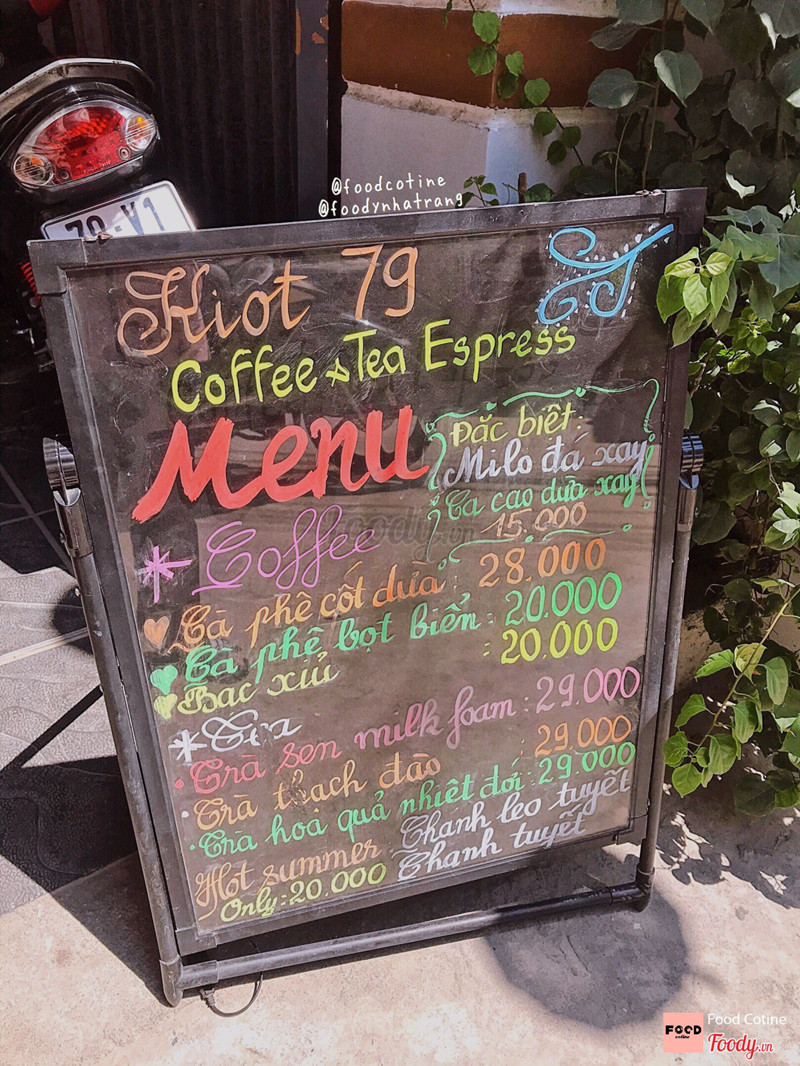 @foodcotine
@foodynhatrang
79-V1
Kiot 79
Coffee & Tea Espress
Menu
Đặc biệt:
Milo đá xay
Ca cao dừa xay
15.000
Coffee
Cà phê cốt dừa: 28.000
Cà phê bọt biển: 20.000
Bạc xỉu : 20.000
Trà
Trà sen milk foam: 29.000
Trà thạch đào : 29.000
Trà hoa quả nhiệt đới: 29.000
Hot summer: Chanh leo tuyết
Chanh tuyết
Only: 20.000
Foody.vn
FOOD
cotine
Food Cotine
Foody.vn